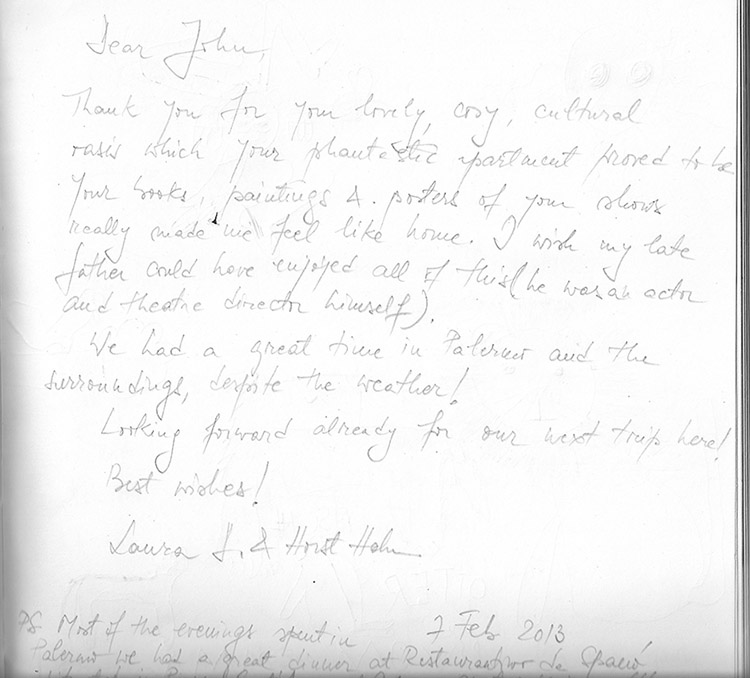 Dear John,
Thank you for your lovely, cosy, cultural
oasis which your phantastic apartment proved to be
Your books, paintings & posters of your shows
really made me feel like home. I wish my late
father could have enjoyed all of this (he was an actor
and theatre director himself).
We had a great time in Palermo and the
surroundings, despite the weather!
Looking forward already for our next trip here!
Best wishes!
Laura J. & Horst Hahn
PS Most of the evenings spent in
7 Feb 2013
Palermo we had a great dinner at